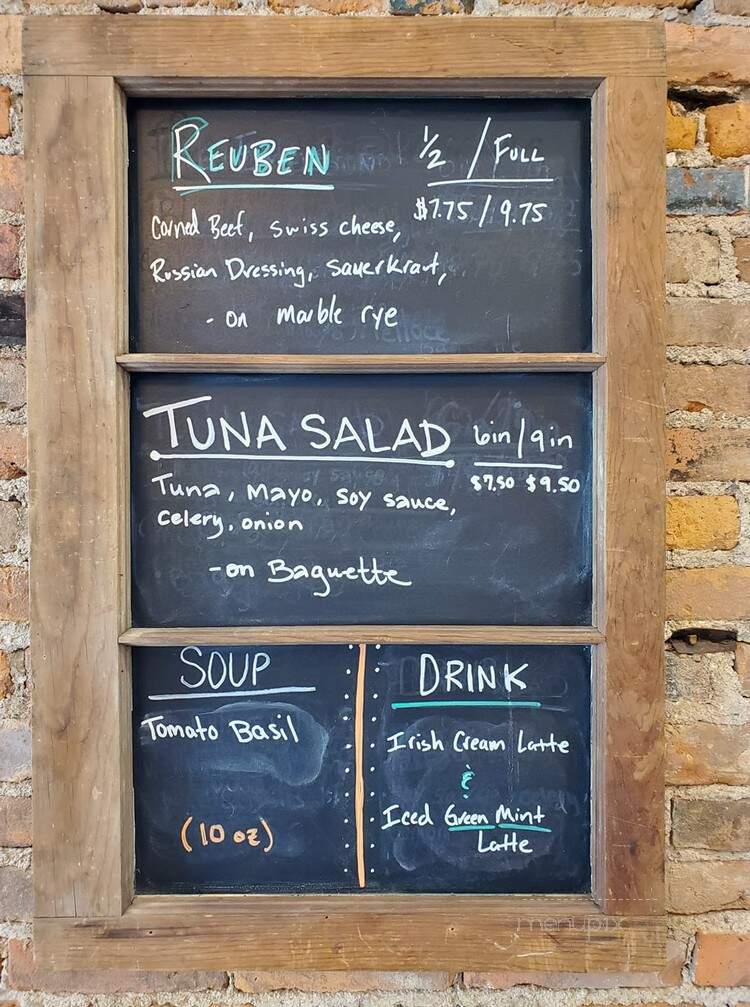 REUBEN
1/2 / FULL
$7.75 / 9.75
Corned Beef, Swiss cheese,
Russian Dressing, Sauerkraut,
- on marble rye
TUNA SALAD
6in/9in
$7.50 $9.50
Tuna, Mayo, Soy sauce,
Celery, onion
- on Baguette
SOUP
Tomato Basil
(10 oz)
DRINK
Irish Cream Latte
&
Iced Green Mint
Latte
menupix